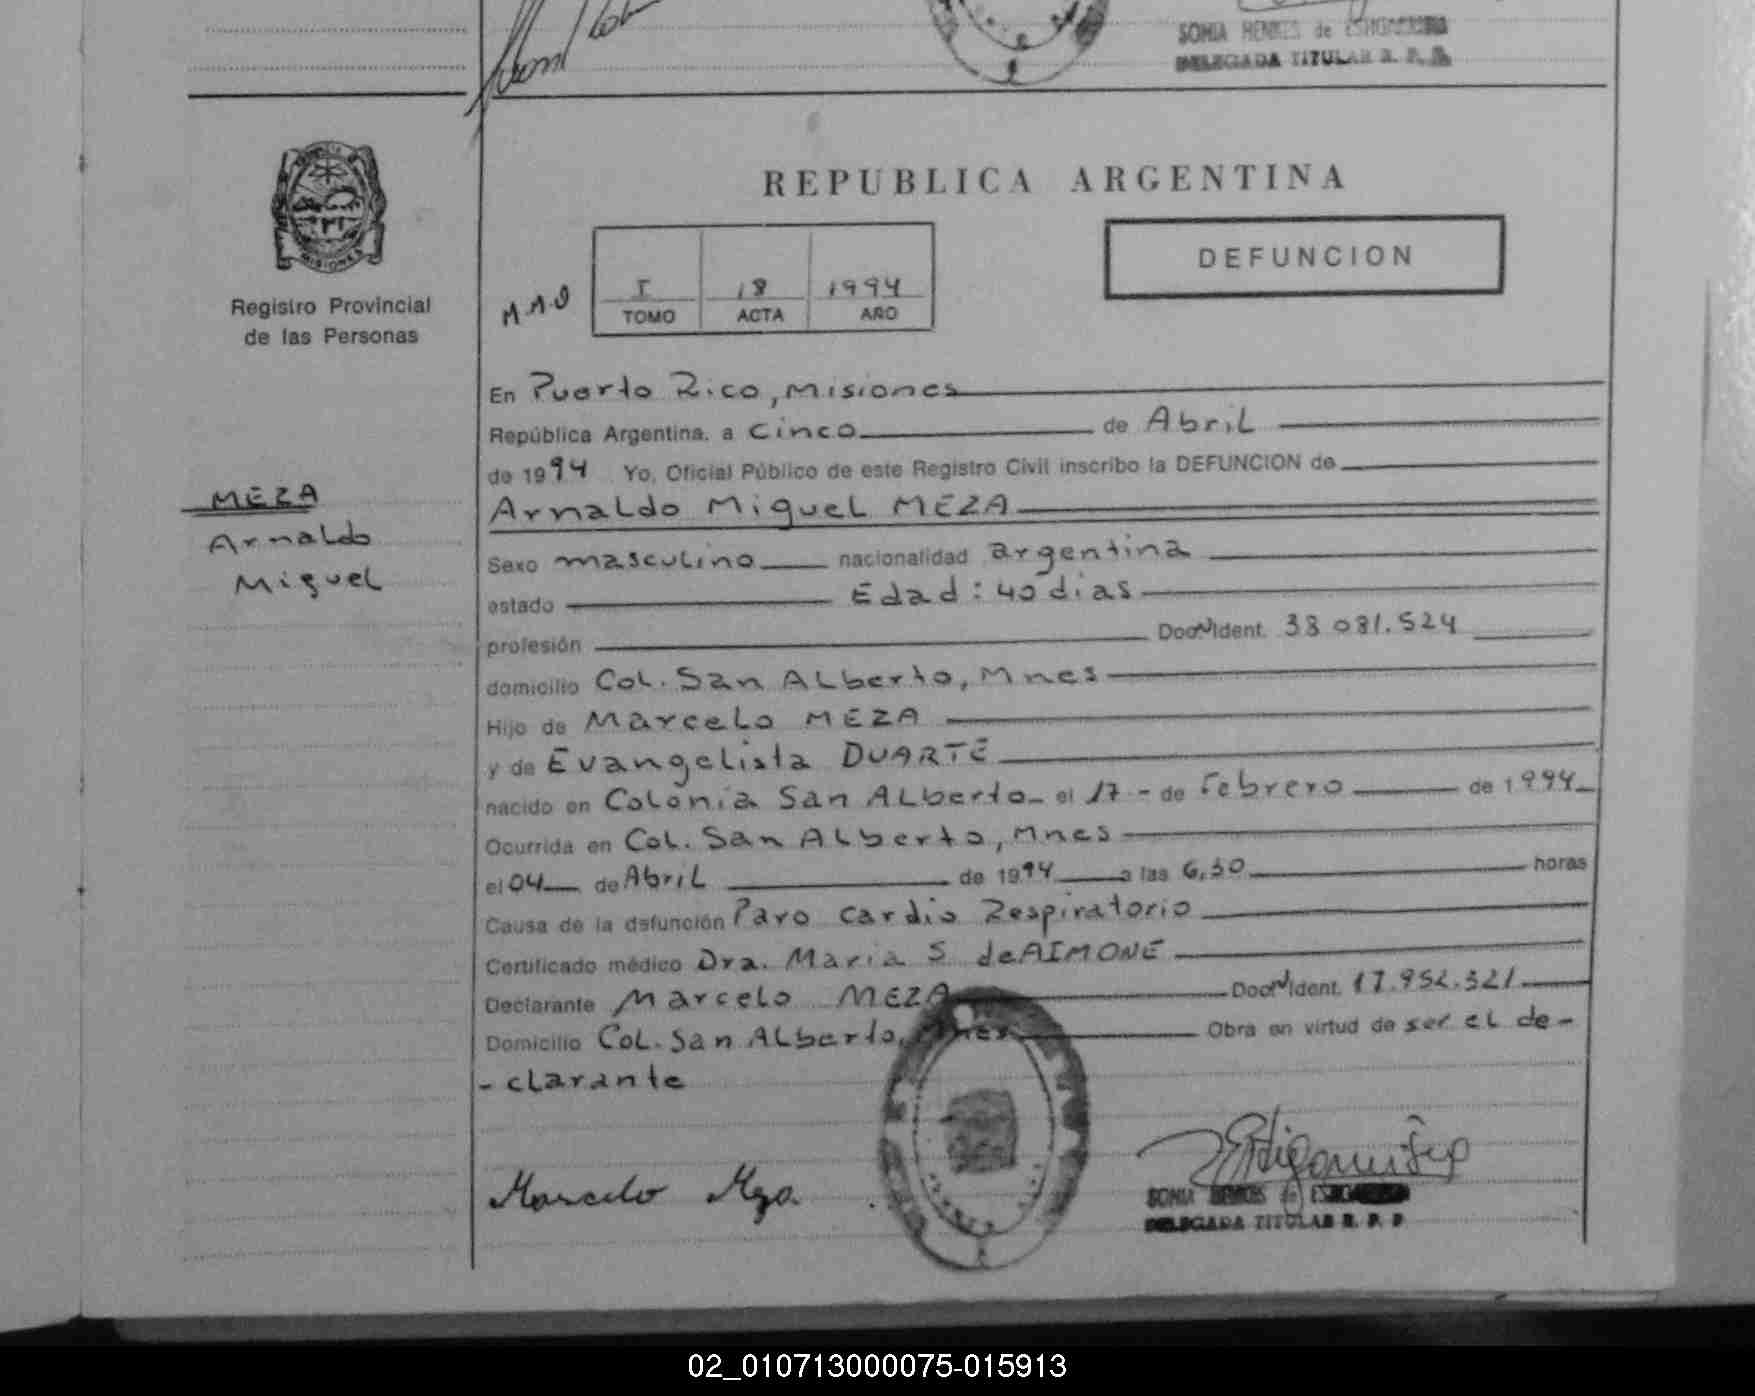 SONIA HENKES de
DELEGADA TITULAR R. P. P.
PROVINCIA DE
MISIONES
Registro Provincial
de las Personas
REPUBLICA ARGENTINA
DEFUNCION
I 18 1994
TOMO ACTA AÑO
En Puerto Rico, Misiones
República Argentina, a cinco de Abril
de 1994 Yo, Oficial Público de este Registro Civil inscribo la DEFUNCION de
MEZA
Arnaldo Miguel MEZA
Arnaldo
Miguel
Sexo masculino nacionalidad argentina
estado Edad: 40 dias
profesión Doc. Ident. 38 081.524
domicilio Col. San Alberto, Mnes
Hijo de Marcelo MEZA
y de Evangelista DUARTE
nacido en Colonia San Alberto - el 17 - de Febrero de 1994
Ocurrida en Col. San Alberto, Mnes
el 04 de Abril de 1994 a las 6,30 horas
Causa de la defunción Paro cardio Respiratorio
Certificado médico Dra. Maria S de AIMONE
Declarante Marcelo MEZA Doc. Ident. 17.952.321
Domicilio Col. San Alberto, Mnes Obra en virtud de ser el de-
- clarante
Marcelo Meza
SONIA HENKES de
DELEGADA TITULAR R. P. P.
02_010713000075-015913